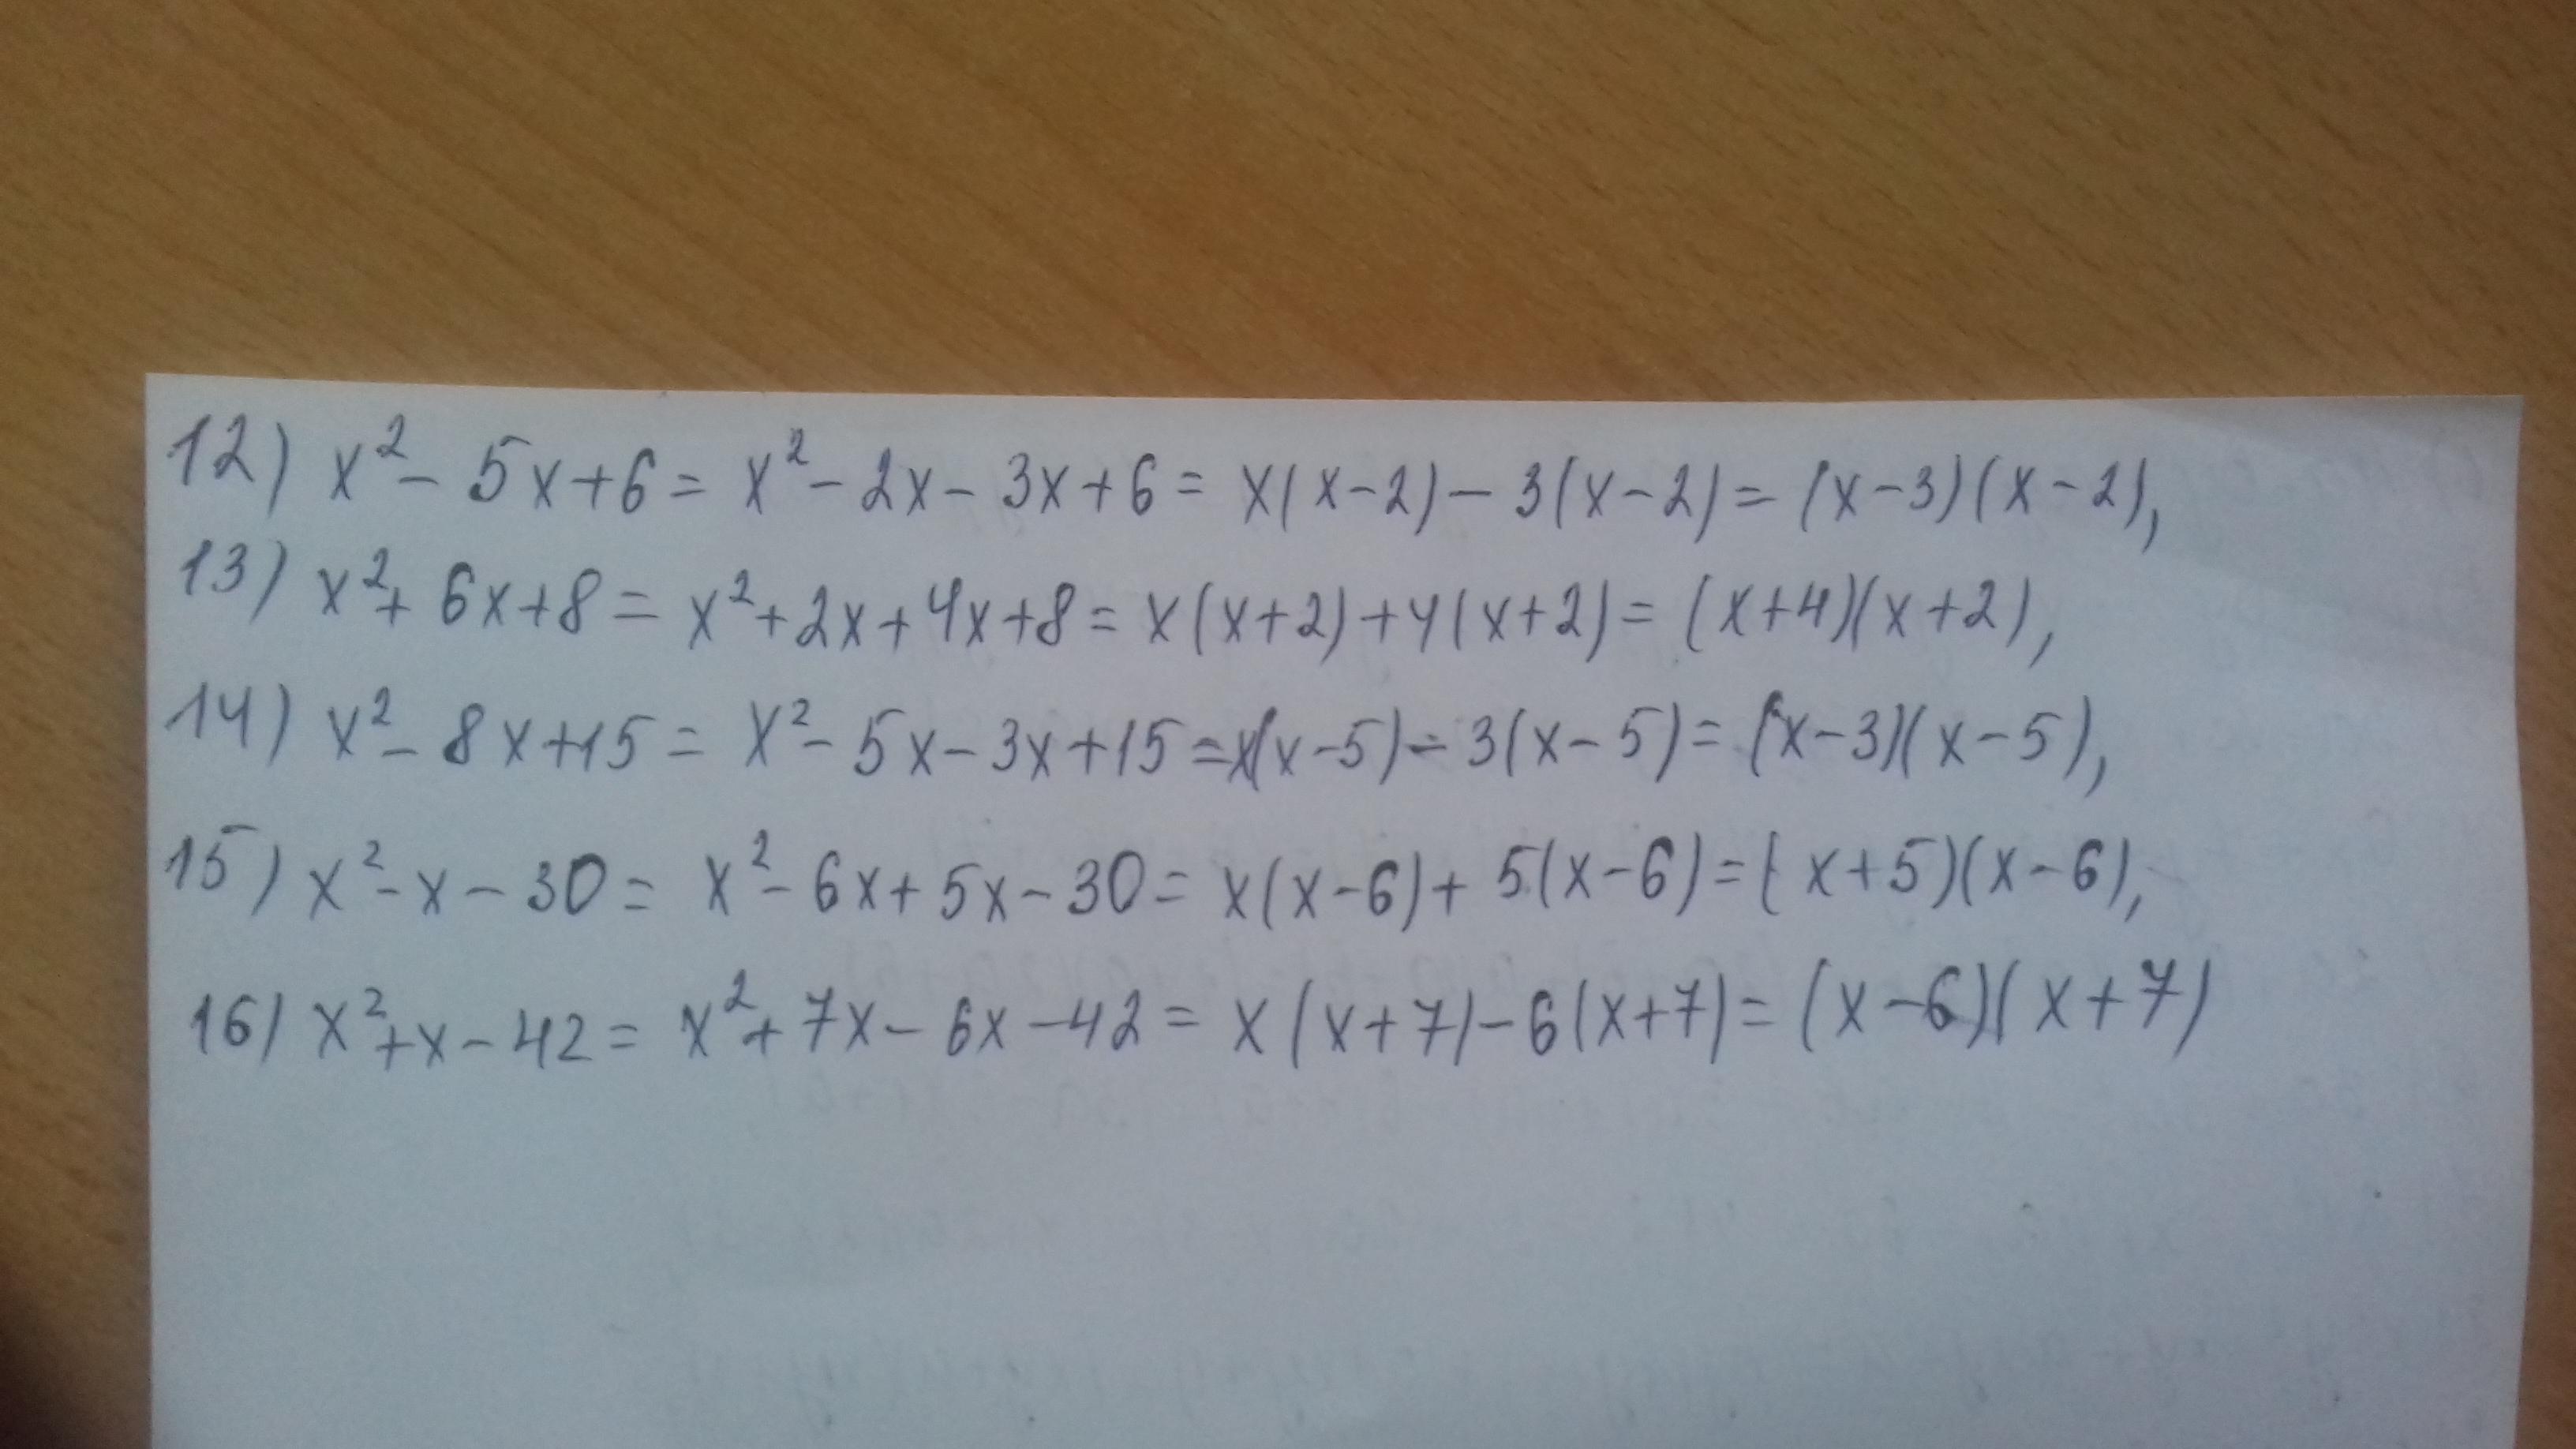 12) x² - 5x + 6 = x² - 2x - 3x + 6 = x(x - 2) - 3(x - 2) = (x - 3)(x - 2),
13) x² + 6x + 8 = x² + 2x + 4x + 8 = x(x + 2) + 4(x + 2) = (x + 4)(x + 2),
14) x² - 8x + 15 = x² - 5x - 3x + 15 = x(x - 5) - 3(x - 5) = (x - 3)(x - 5),
15) x² - x - 30 = x² - 6x + 5x - 30 = x(x - 6) + 5(x - 6) = (x + 5)(x - 6),
16) x² + x - 42 = x² + 7x - 6x - 42 = x(x + 7) - 6(x + 7) = (x - 6)(x + 7)